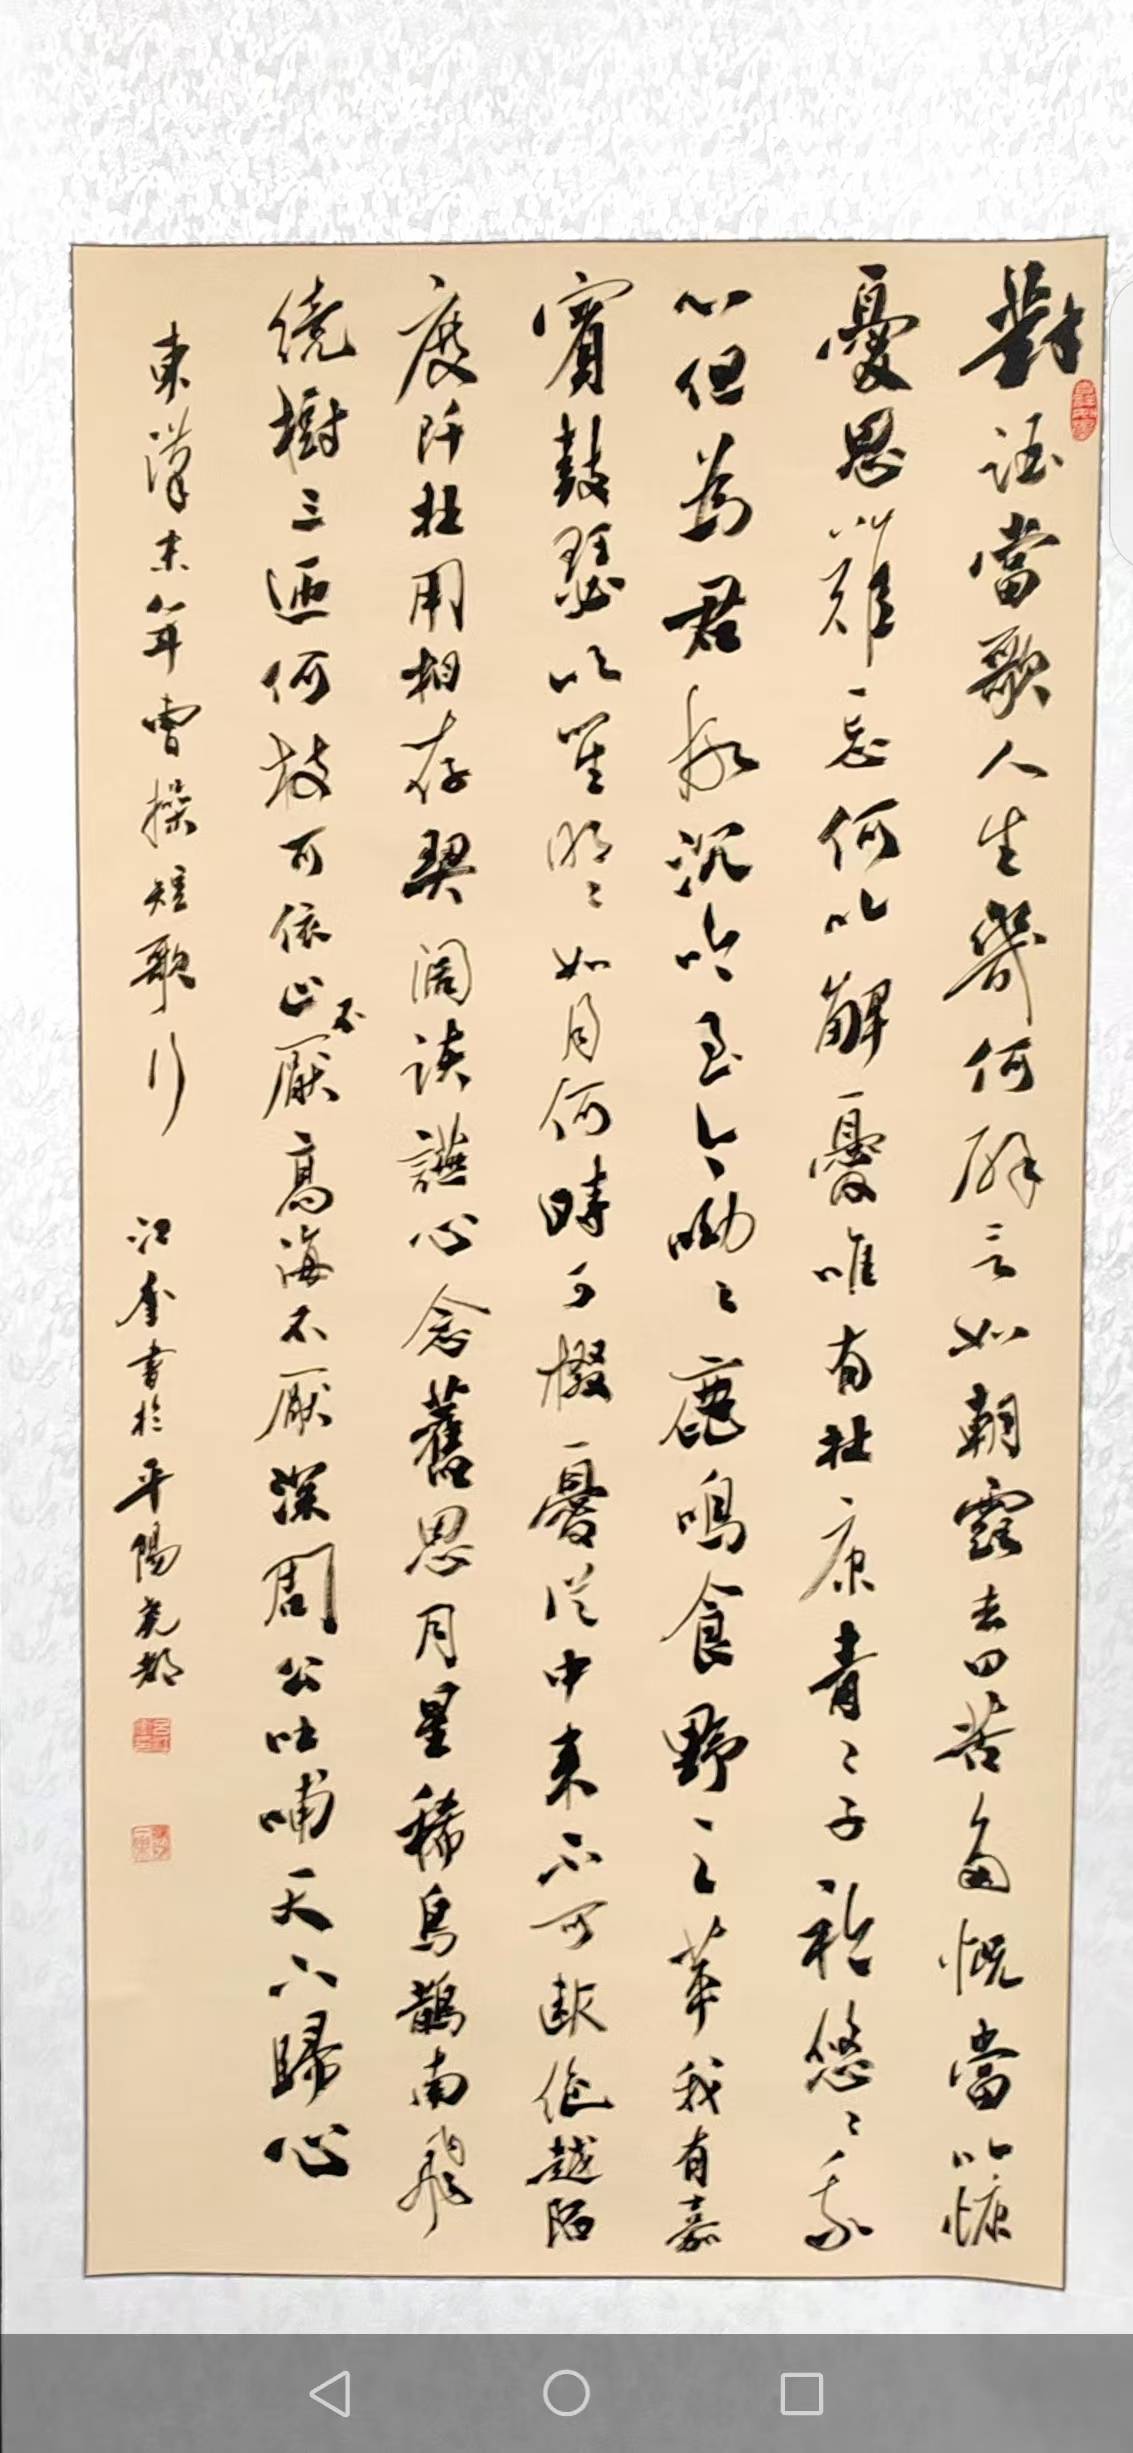 對酒當歌人生幾何譬如朝露去日苦多慨當以慷
憂思難忘何以解憂唯有杜康青〻子衿悠〻我
心但為君故沉吟至今呦〻鹿鳴食野之苹我有嘉
賓鼓瑟吹笙明〻如月何時可掇憂從中來不可斷絕越陌
度阡枉用相存契闊談讌心念舊恩月星稀烏鵲南飛
繞樹三匝何枝可依山不厭高海不厭深周公吐哺天下歸心
東漢末年曹操短歌行 江奎書於平陽堯都